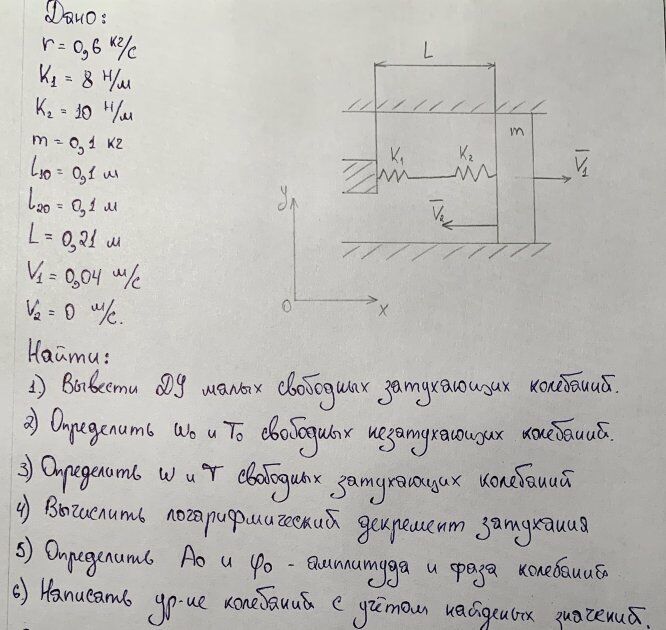 Дано:
r = 0,6 кг/с
K₁ = 8 Н/м
K₂ = 10 Н/м
m = 0,1 кг
l₁₀ = 0,1 м
l₂₀ = 0,1 м
L = 0,21 м
V₁ = 0,04 м/с
V₂ = 0 м/с.
L
m
K₁ K₂
V̅₁
V̅₂
y
0 x
Найти:
1) Вывести ДУ малых свободных затухающих колебаний.
2) Определить ω₀ и T₀ свободных незатухающих колебаний.
3) Определить ω и T свободных затухающих колебаний
4) Вычислить логарифмический декремент затухания
5) Определить A₀ и φ₀ - амплитуда и фаза колебаний.
6) Написать ур-ие колебаний с учётом найденых значений.